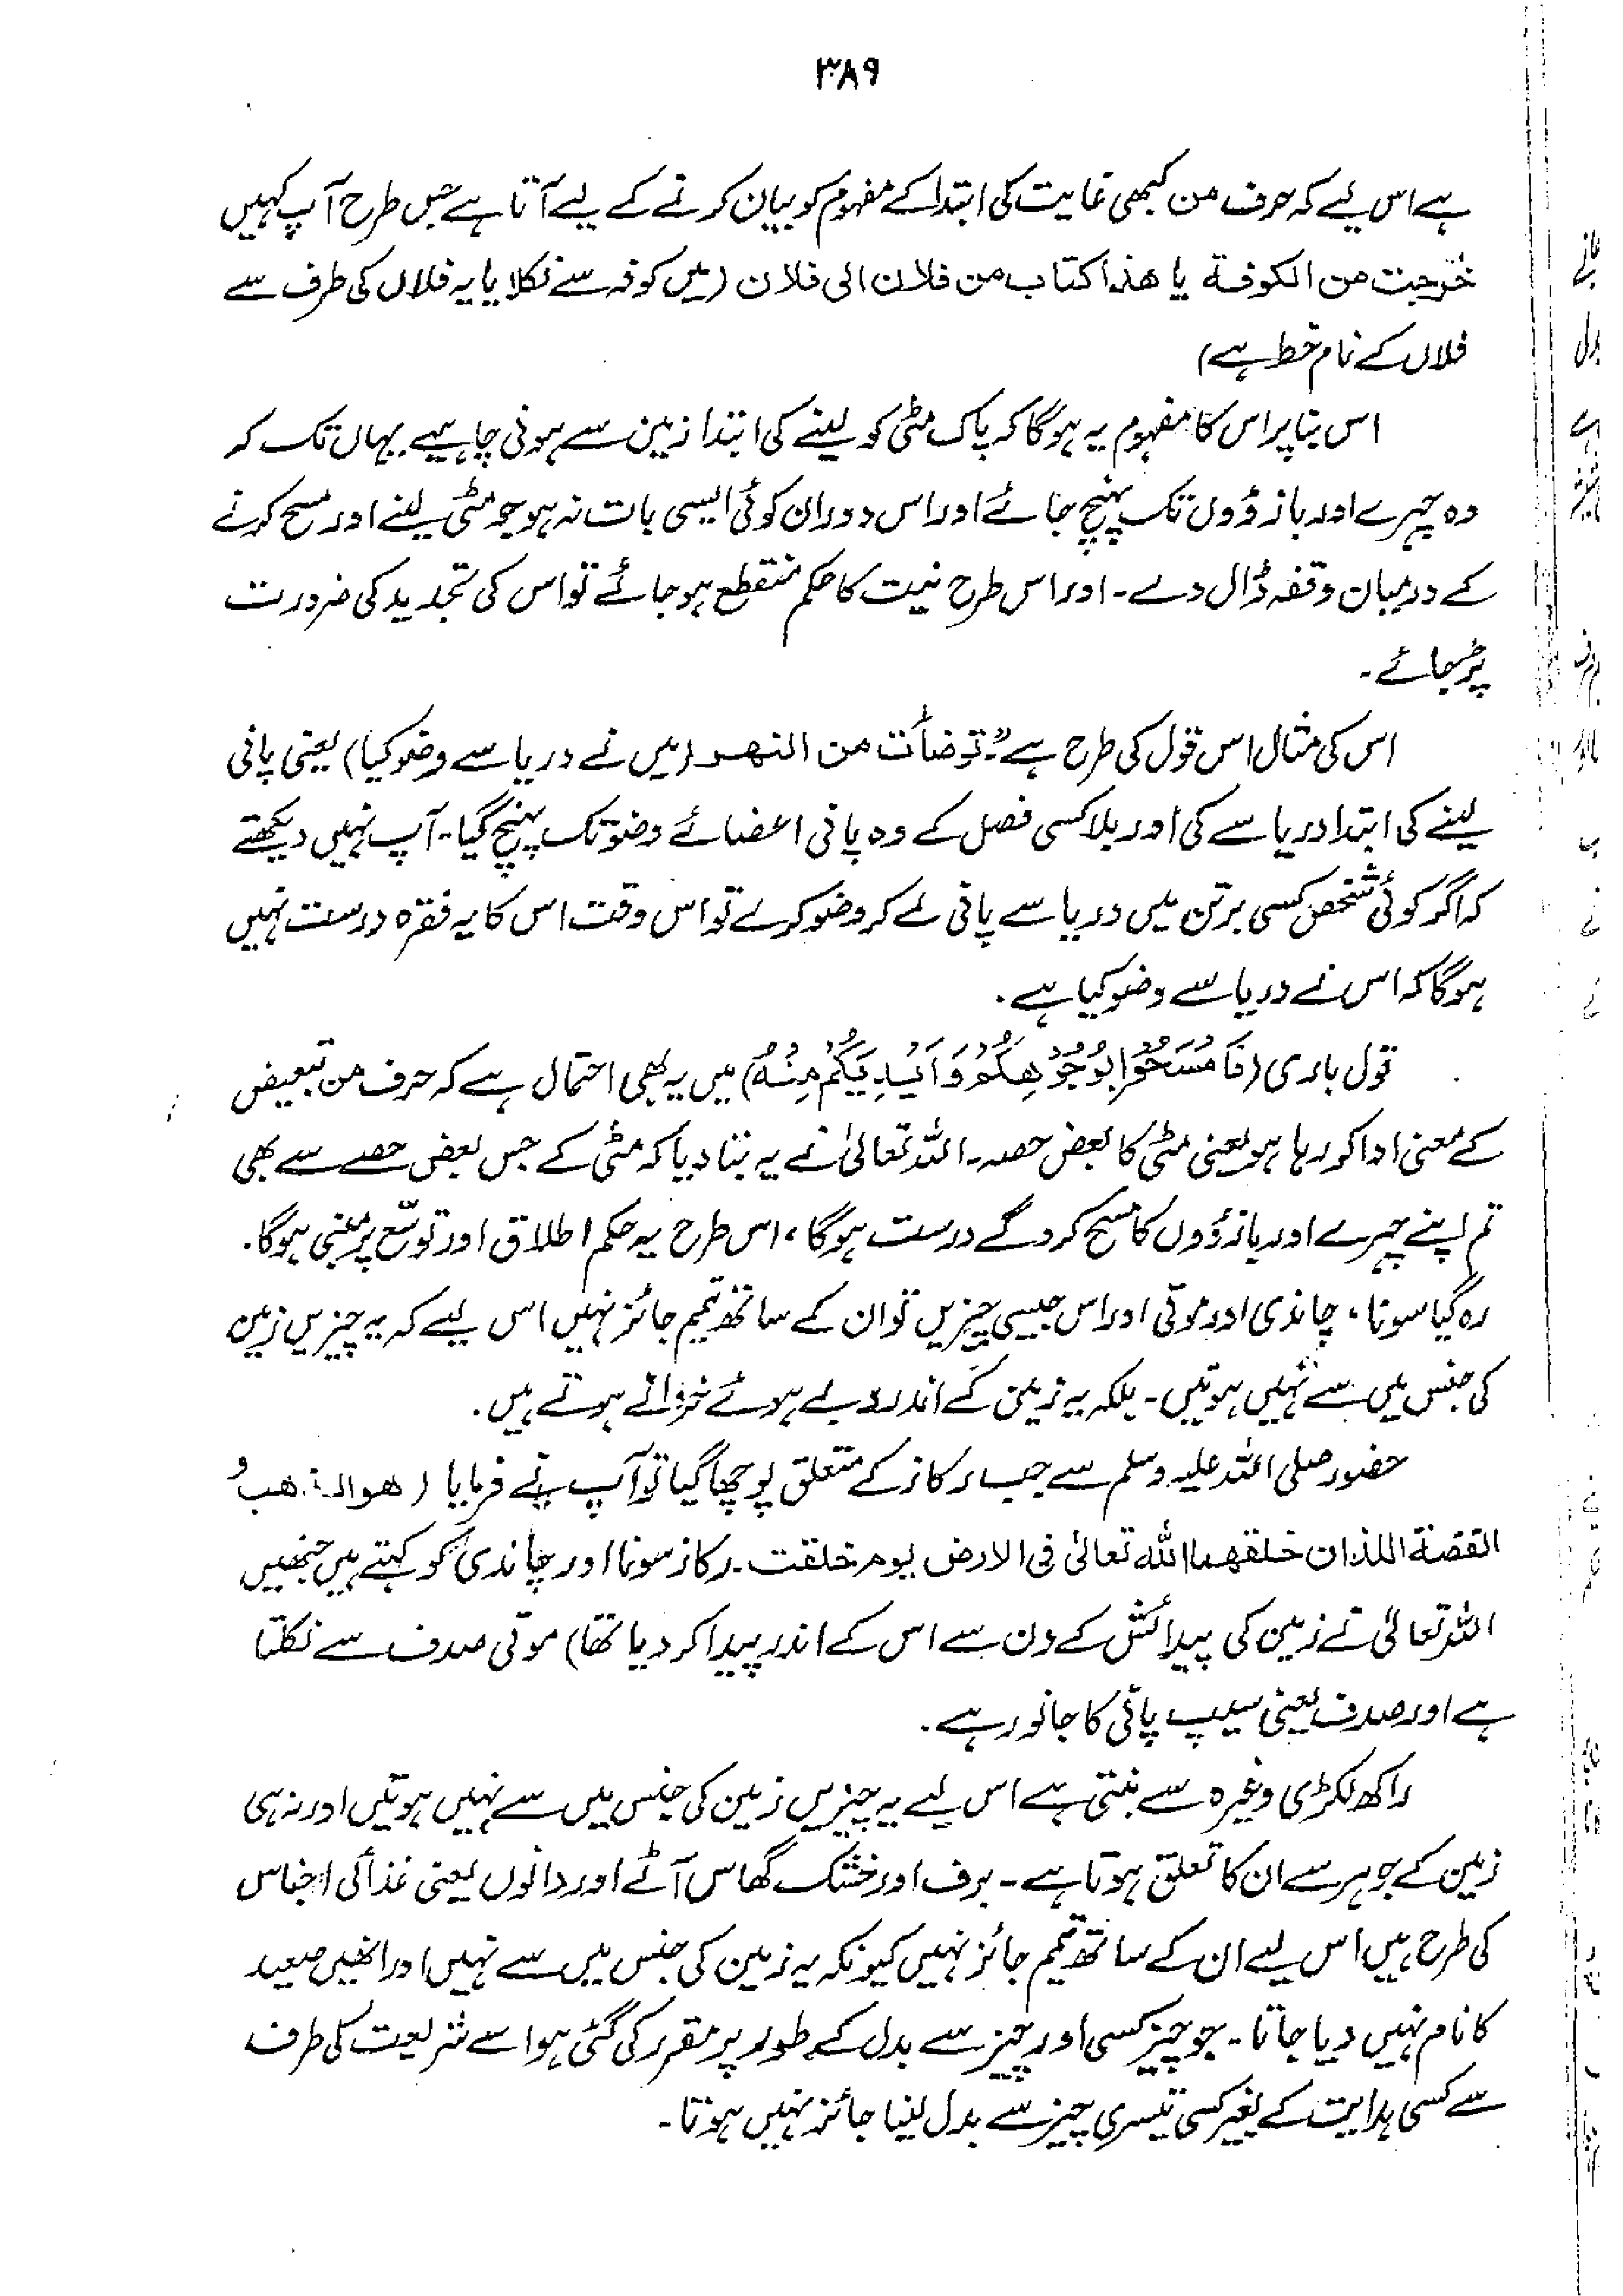 ۳۸۹
ہے اس لیے کہ حرف من کبھی غایت کی ابتدا کے مفہوم کو بیان کرنے کے لیے آتا ہے جس طرح آپ کہیں
خرجت من الکوفۃ یا ھذا کتاب من فلان الی فلان (میں کوفہ سے نکلا یا یہ فلاں کی طرف سے
فلاں کے نام خط ہے)
اس بنا پر اس کا مفہوم یہ ہوگا کہ پاک مٹی کو لینے کی ابتدا زمین سے ہونی چاہیے یہاں تک کہ
وہ چہرے اور بازوؤں تک پہنچ جائے اور اس دوران کوئی ایسی بات نہ ہو جو مٹی لینے اور مسح کرنے
کے درمیان وقفہ ڈال دے۔ اور اس طرح نیت کا حکم منقطع ہو جائے تو اس کی تجدید کی ضرورت
پڑ جائے۔
اس کی مثال اس قول کی طرح ہے "توضأت من النھر (میں نے دریا سے وضو کیا) یعنی پانی
لینے کی ابتدا دریا سے کی اور بلا کسی فصل کے وہ پانی اعضائے وضو تک پہنچ گیا۔ آپ نہیں دیکھتے
کہ اگر کوئی شخص کسی برتن میں دریا سے پانی لے کر وضو کرلے تو اس وقت اس کا یہ فقرہ درست نہیں
ہوگا کہ اس نے دریا سے وضو کیا ہے۔
قول باری (فَامْسَحُوْا بِوُجُوْهِكُمْ وَاَيْدِيَكُمْ مِنْهُ) میں یہ بھی احتمال ہے کہ حرف من تبعیض
کے معنی ادا کر رہا ہو یعنی مٹی کا بعض حصہ۔ اللہ تعالیٰ نے یہ بتا دیا کہ مٹی کے جس بعض حصے سے بھی
تم اپنے چہرے اور بازوؤں کا مسح کرو گے درست ہوگا، اس طرح یہ حکم اطلاق اور توسّع پر مبنی ہوگا۔
رہ گیا سونا، چاندی اور موتی اور اس جیسی چیزیں تو ان کے ساتھ تیمم جائز نہیں اس لیے کہ یہ چیزیں زمین
کی جنس میں سے نہیں ہوتیں۔ بلکہ یہ زمین کے اندر دبے ہوئے خزانے ہوتے ہیں۔
حضور صلی اللہ علیہ وسلم سے جب رکاز کے متعلق پوچھا گیا تو آپ نے فرمایا (ھو الذھب و
الفضۃ اللذان خلقھما اللہ تعالیٰ فی الارض یوم خلقت۔ رکاز سونا اور چاندی کو کہتے ہیں جنھیں
اللہ تعالیٰ نے زمین کی پیدائش کے دن سے اس کے اندر پیدا کر دیا تھا) موتی صدف سے نکلتا
ہے اور صدف یعنی سیپ پانی کا جانور ہے۔
راکھ لکڑی وغیرہ سے بنتی ہے اس لیے یہ چیزیں زمین کی جنس میں سے نہیں ہوتیں اور نہ ہی
زمین کے جوہر سے ان کا تعلق ہوتا ہے۔ برف اور خشک گھاس آٹے اور دانوں یعنی غذائی اجناس
کی طرح ہیں اس لیے ان کے ساتھ تیمم جائز نہیں کیونکہ یہ زمین کی جنس میں سے نہیں اور انھیں صعید
کا نام نہیں دیا جاتا۔ جو چیز کسی اور چیز سے بدل کے طور پر مقرر کی گئی ہو اسے شریعت کی طرف
سے کسی ہدایت کے بغیر کسی تیسری چیز سے بدل لینا جائز نہیں ہوتا۔